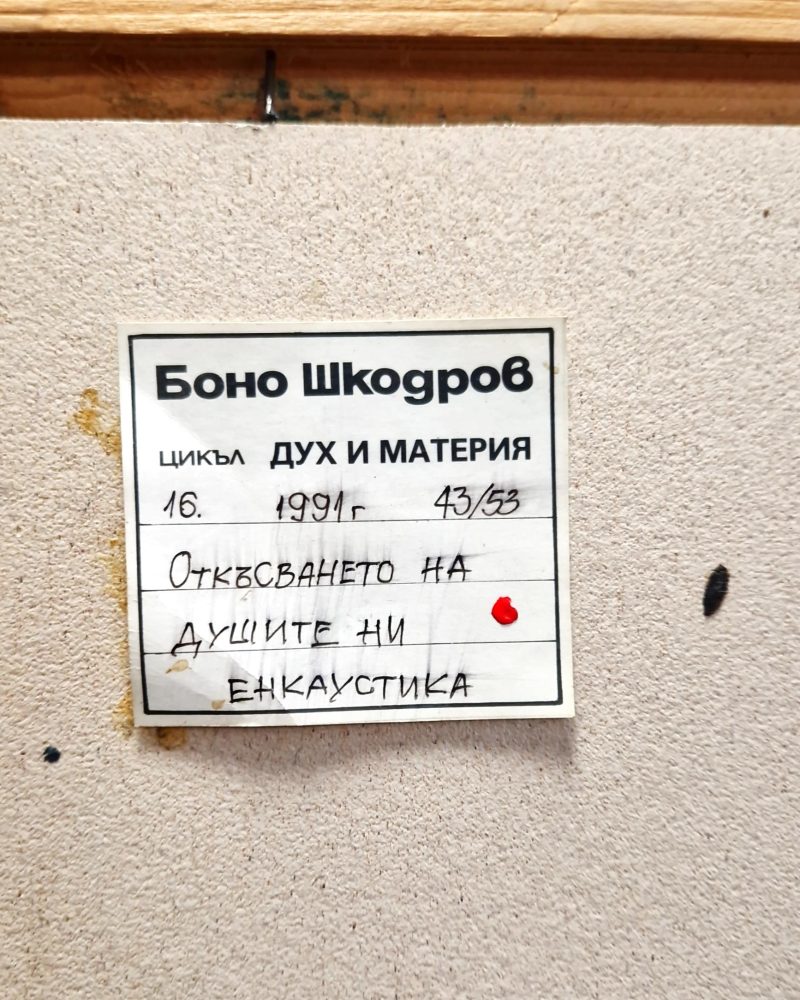 Боно Шкодров
цикъл ДУХ И МАТЕРИЯ
16. 1991г 43/53
Откъсването на
душите ни
енкаустика